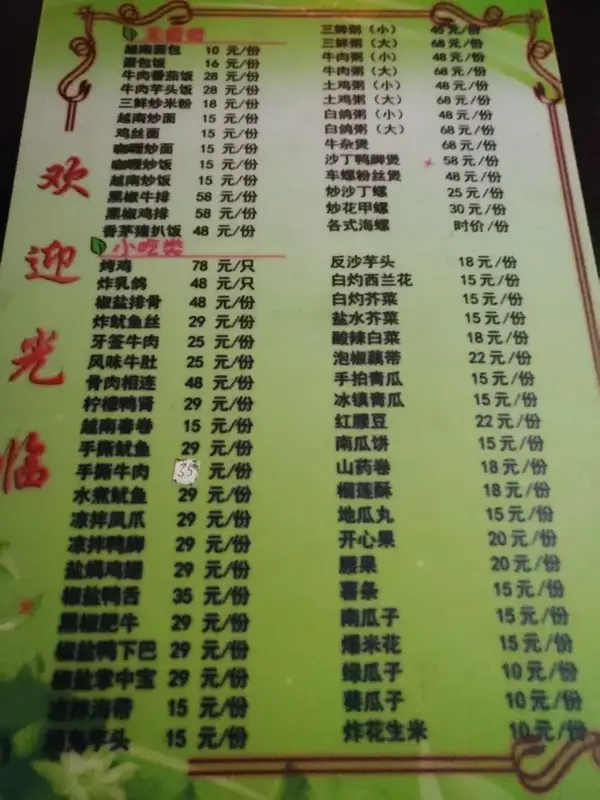 欢迎光临
越南面包 10 元/份
面包饭 16 元/份
牛肉番茄饭 28 元/份
牛肉芋头饭 28 元/份
三鲜炒米粉 18 元/份
越南炒面 15 元/份
鸡丝面 15 元/份
咖喱炒面 15 元/份
咖喱炒饭 15 元/份
越南炒饭 15 元/份
黑椒牛排 58 元/份
黑椒鸡排 58 元/份
香茅猪扒饭 48 元/份
三鲜粥（小） 45 元/份
三鲜粥（大） 68 元/份
牛肉粥（小） 48 元/份
牛肉粥（大） 68 元/份
土鸡粥（小） 48 元/份
土鸡粥（大） 68 元/份
白鸽粥（小） 48 元/份
白鸽粥（大） 68 元/份
牛杂煲 68 元/份
沙丁鸭脚煲 58 元/份
车螺粉丝煲 48 元/份
炒沙丁螺 25 元/份
炒花甲螺 30 元/份
各式海螺 时价/份
小吃类
烤鸡 78 元/只
炸乳鸽 48 元/只
椒盐排骨 48 元/份
炸鱿鱼丝 29 元/份
牙签牛肉 25 元/份
风味牛肚 25 元/份
骨肉相连 48 元/份
柠檬鸭肾 29 元/份
越南春卷 15 元/份
手撕鱿鱼 29 元/份
手撕牛肉 35 元/份
水煮鱿鱼 29 元/份
凉拌凤爪 29 元/份
凉拌鸭脚 29 元/份
盐焗鸡翅 29 元/份
椒盐鸭舌 35 元/份
黑椒肥牛 29 元/份
椒盐鸭下巴 29 元/份
椒盐掌中宝 29 元/份
凉拌海带 15 元/份
芋头 15 元/份
反沙芋头 18 元/份
白灼西兰花 15 元/份
白灼芥菜 15 元/份
盐水芥菜 15 元/份
酸辣白菜 18 元/份
泡椒藕带 22 元/份
手拍青瓜 15 元/份
冰镇青瓜 15 元/份
红腰豆 22 元/份
南瓜饼 15 元/份
山药卷 18 元/份
榴莲酥 18 元/份
地瓜丸 15 元/份
开心果 20 元/份
腰果 20 元/份
薯条 15 元/份
南瓜子 15 元/份
爆米花 15 元/份
绿瓜子 10 元/份
葵瓜子 10 元/份
炸花生米 10 元/份